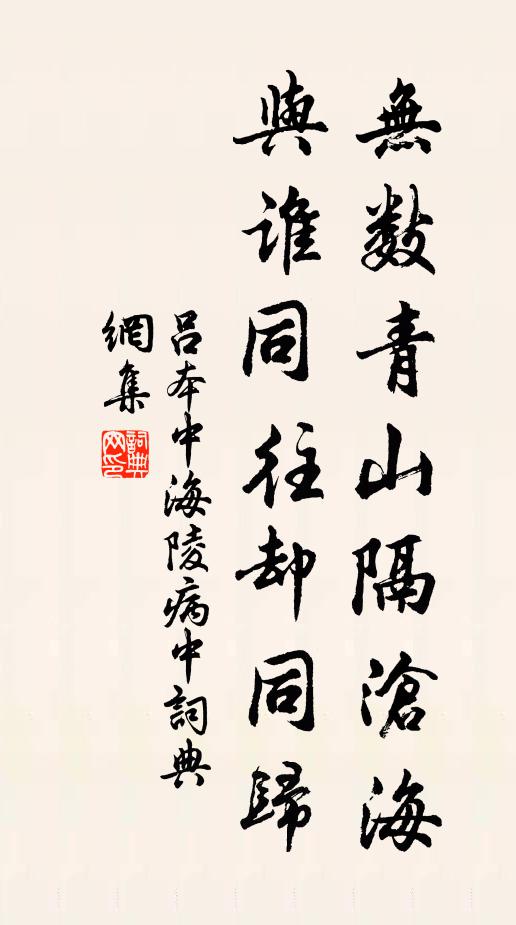 無數青山隔滄海
與誰同往却同歸
呂本中海陵病中詞典
網集
詞典網印